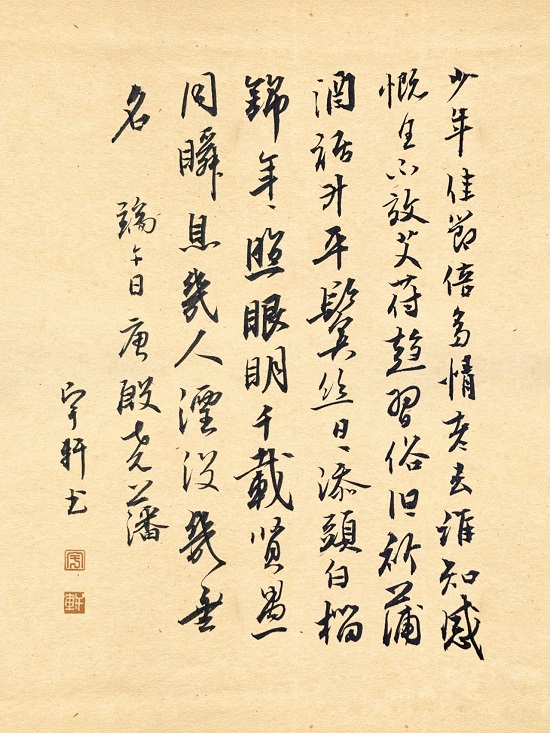 少年佳節倍多情老去誰知感
慨生不效艾苻趨習俗但祈蒲
酒話升平鬢絲日〻添頭白榴
錦年〻照眼明千載贤愚
同瞬息幾人湮没幾垂
名 端午日 唐殷堯藩
宇軒书
宇
軒